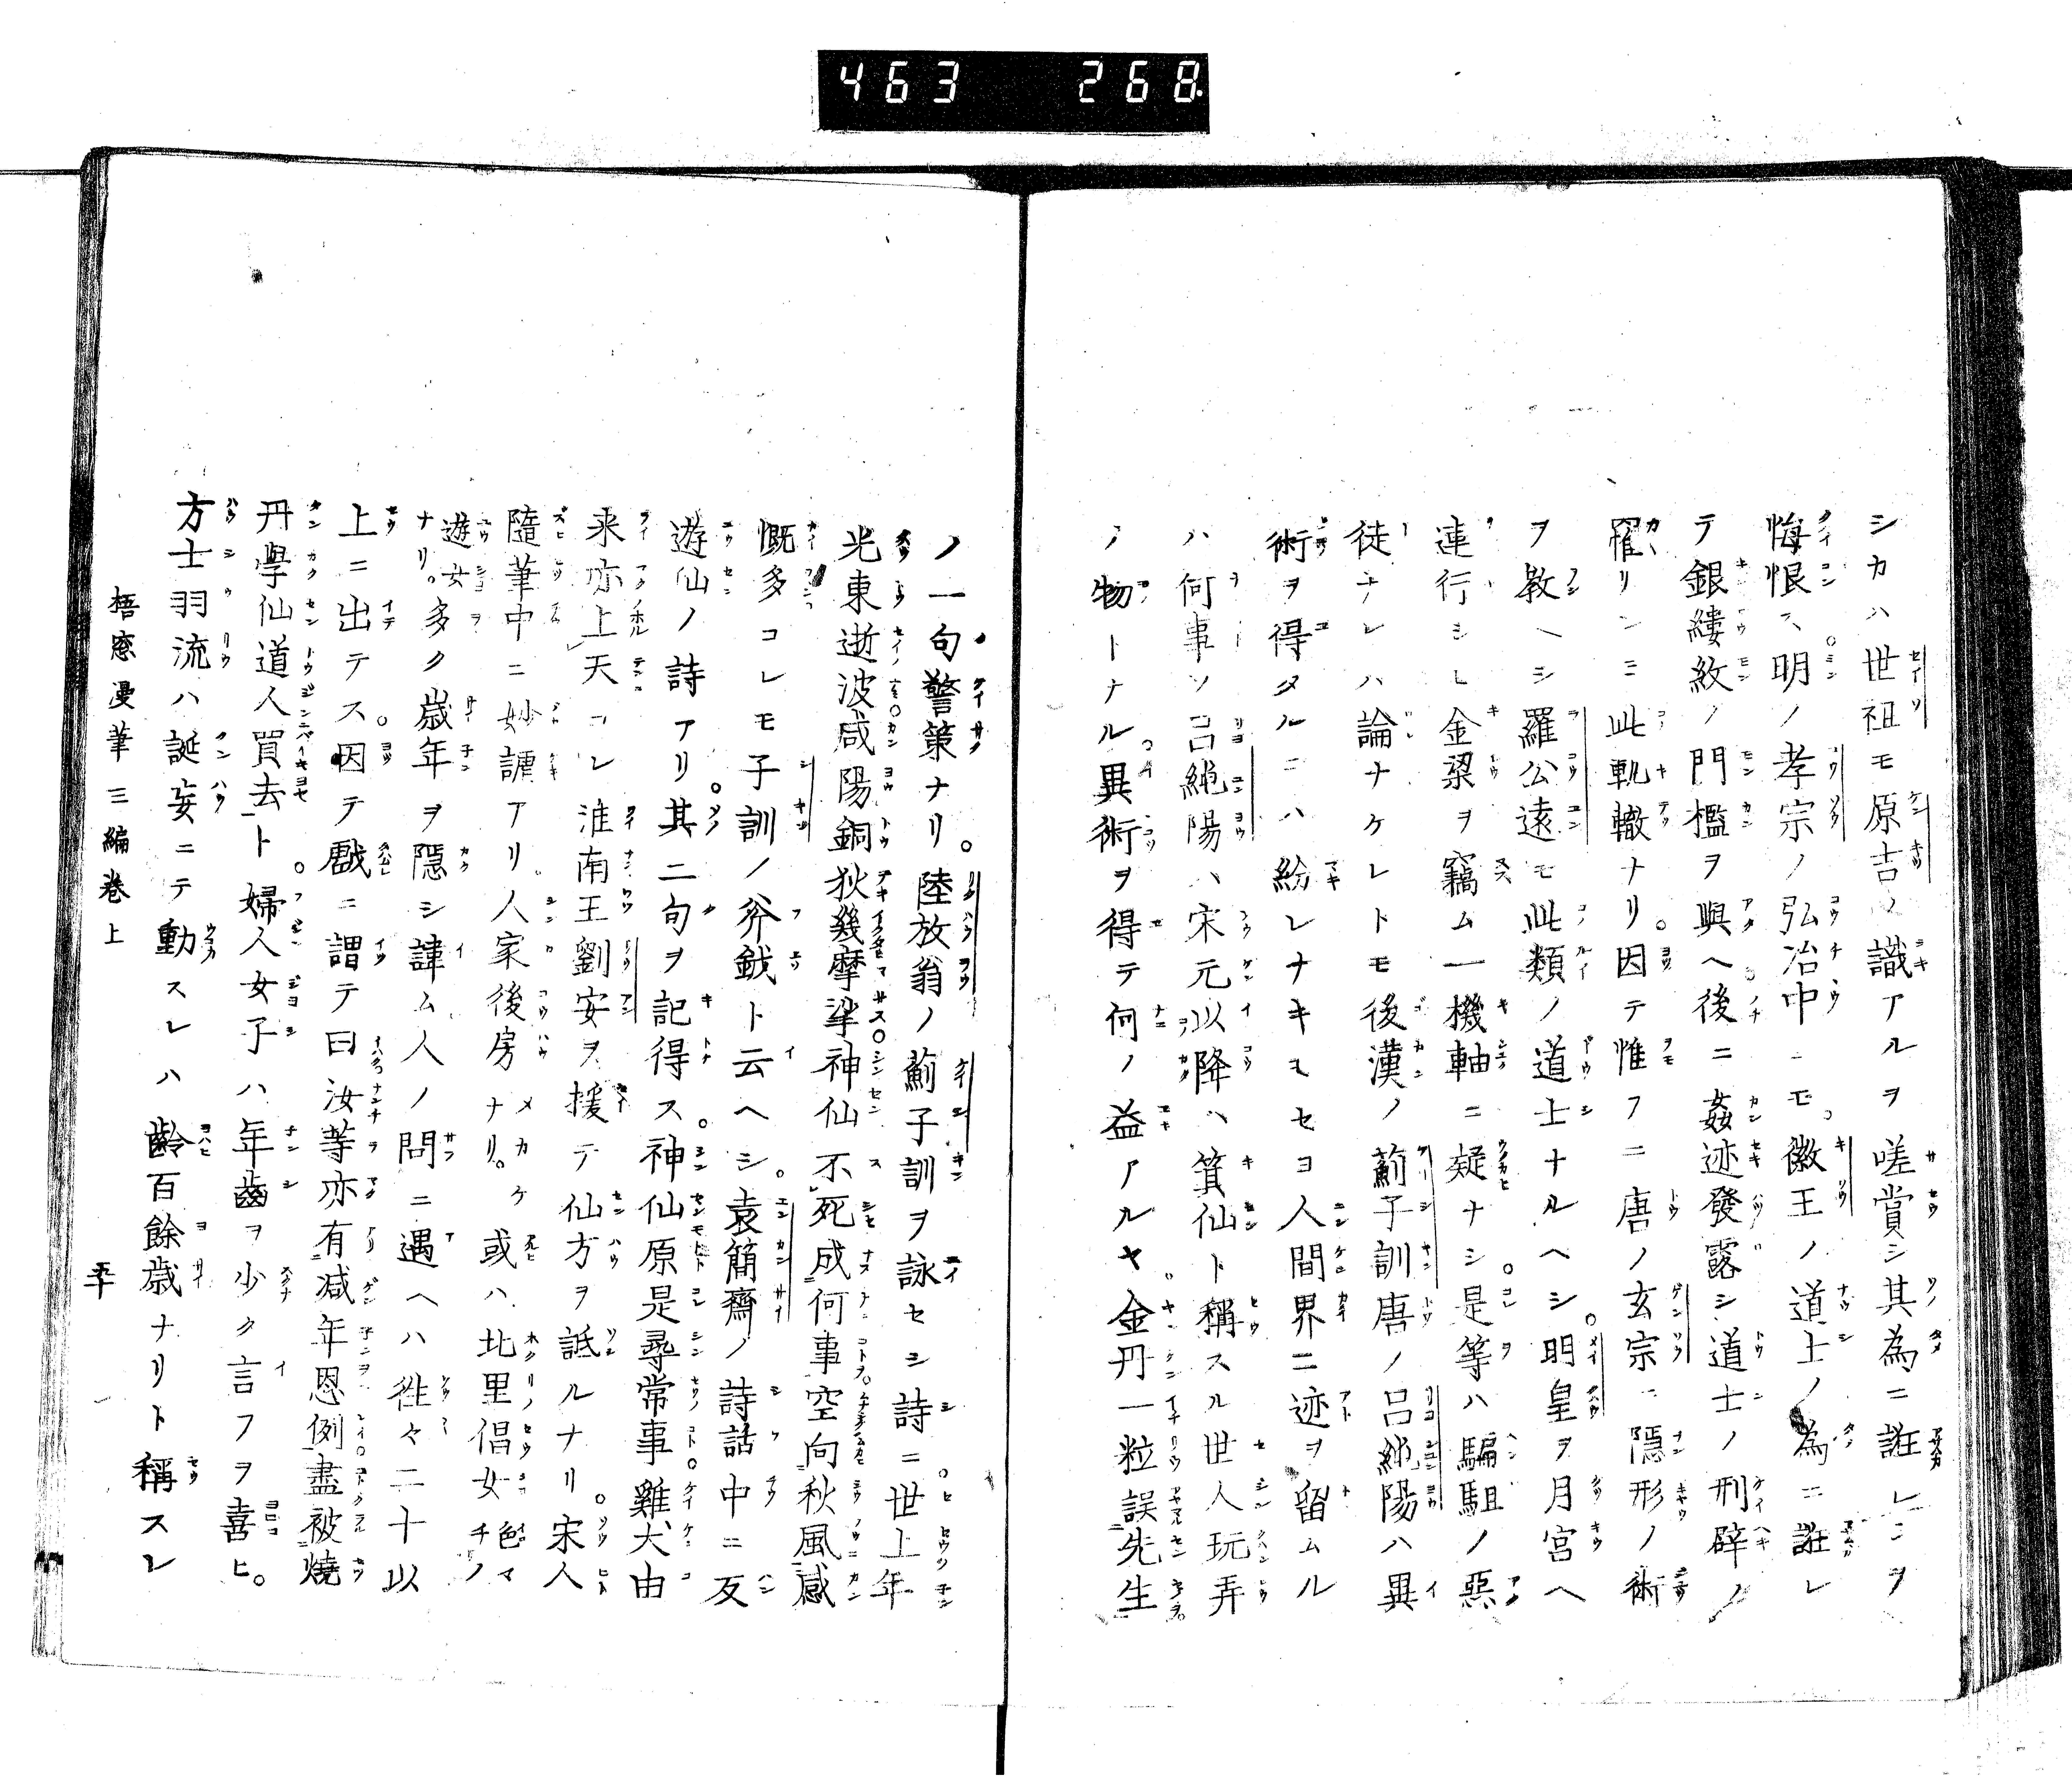 463 268
シカハ世祖モ原吉ノ識アルヲ嗟賞シ其為ニ誑レシヲ
悔恨ス明ノ孝宗ノ弘治中ニモ徽王ノ道士ノ為ニ誑レ
テ銀縷紋ノ門檻ヲ與ヘ後ニ姦迹發露シ道士ノ刑辟ノ
罹リシニ此軌轍ナリ因テ惟フニ唐ノ玄宗ニ隠形ノ術
ヲ教ヘシ羅公遠モ此類ノ道士ナルヘシ明皇ヲ月宮ヘ
連行シヒ金梁ヲ竊ム一機軸ニ疑ナシ是等ハ騙駔ノ惡
徒ナレハ論ナケレトモ後漢ノ薊子訓唐ノ呂純陽ハ異
術ヲ得タルニハ紛レナキモセヨ人間界ニ迹ヲ留ムル
ハ何事ソ呂純陽ハ宋元以降ハ箕仙ト稱スル世人玩弄
ノ物トナル異術ヲ得テ何ノ益アルヤ金丹一粒誤先生
ノ一句警策ナリ陸放翁ノ薊子訓ヲ詠セシ詩ニ世上年
光東逝波咸陽銅狄幾摩挲神仙不死成何事空向秋風感
慨多コレモ子訓ノ斧鉞ト云ヘシ袁簡齋ノ詩話中ニ反
遊仙ノ詩アリ其二句ヲ記得ス神仙原是尋常事雞犬由
来亦上天コレ淮南王劉安ヲ援テ仙方ヲ詆ルナリ宋人
隨筆中ニ妙謔アリ人家後房メカケナリ或ハ北里倡女色マチノ
遊女ナリ多ク歳年ヲ隠シ諱ム人ノ問ニ遇ヘハ徃々二十以
上ニ出テス因テ戯ニ謂テ曰汝等亦有减年恩例盡被燒
丹學仙道人買去ト婦人女子ハ年齒ヲ少ク言フヲ喜ヒ
方士羽流ハ誕妄ニテ動スレハ齡百餘歳ナリト稱スレ
梧窓漫筆三編卷上 五十